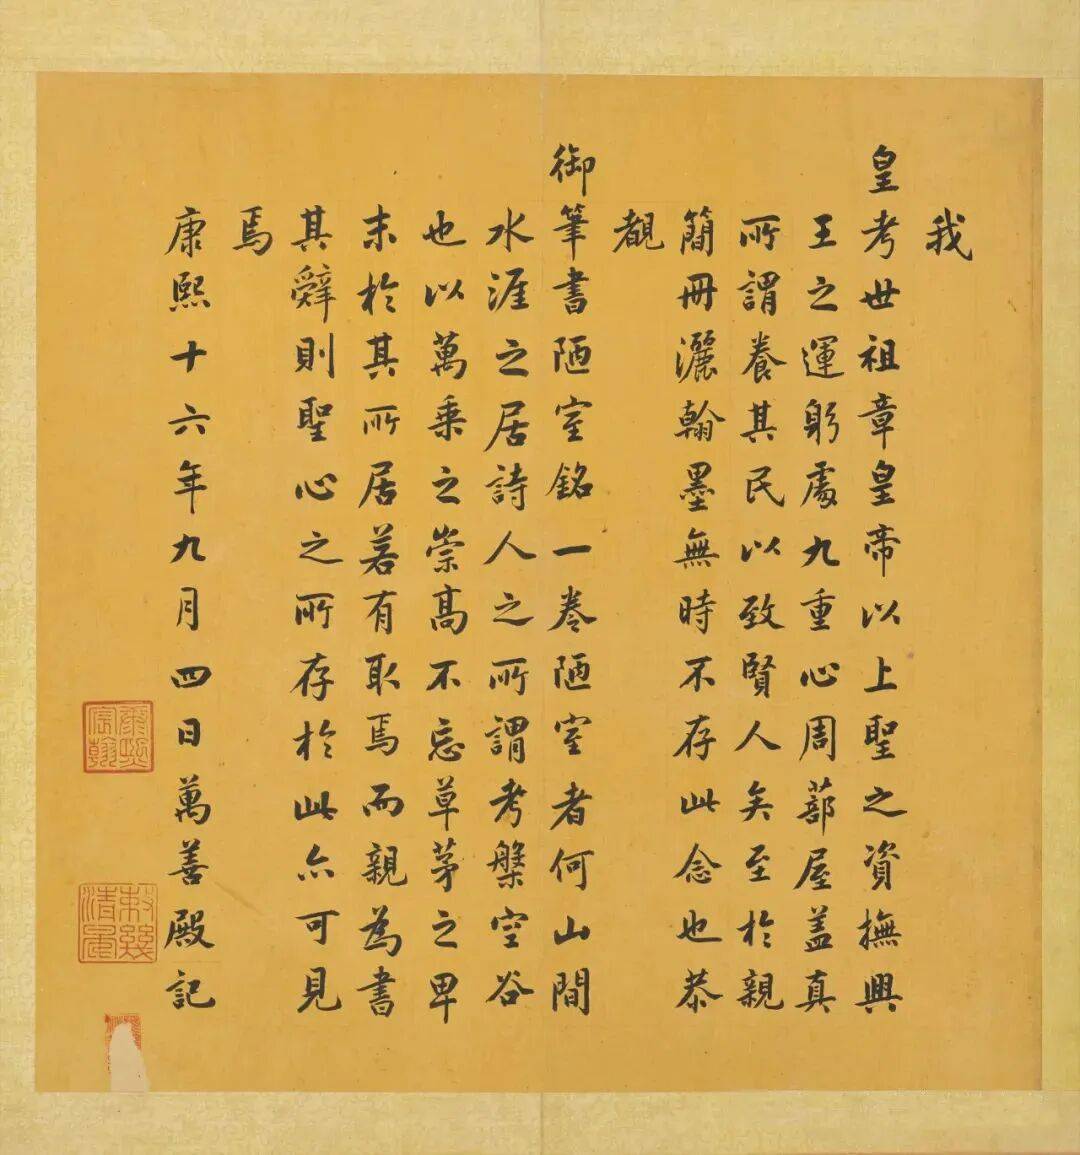 我
皇考世祖章皇皇帝以上聖之資撫興
王之運躬處九重心周蔀屋蓋真
所謂養其民以致賢人矣至於親
簡冊灑翰墨無時不存此念也恭
覩
御筆書陋室銘一卷陋室者何山間
水涯之居詩人之所謂考槃空谷
也以萬乘之崇高不忘草茅之卑
末於其所居若有取焉而親為書
其辭則聖心之所存於此亦可見
焉
康熙十六年九月四日萬善殿記